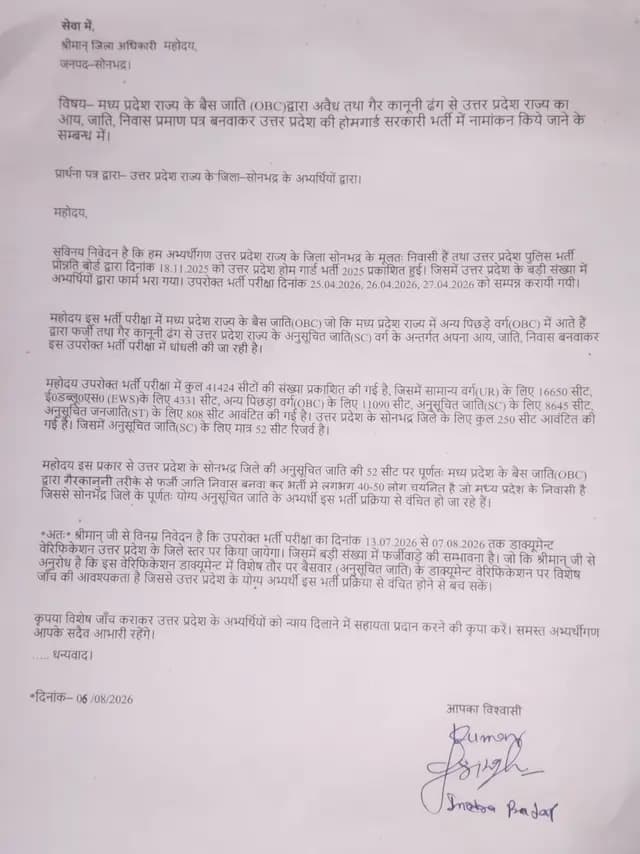 सेवा में,
श्रीमान् जिला अधिकारी महोदय,
जनपद–सोनभद्र।
विषय– मध्य प्रदेश राज्य के बैस जाति (OBC)द्वारा अवैध तथा गैर कानूनी ढंग से उत्तर प्रदेश राज्य का
आय, जाति, निवास प्रमाण पत्र बनवाकर उत्तर प्रदेश की होमगार्ड सरकारी भर्ती में नामांकन किये जाने के
सम्बन्ध में।
प्रार्थना पत्र द्वारा– उत्तर प्रदेश राज्य के जिला–सोनभद्र के अभ्यर्थियों द्वारा।
महोदय,
सविनय निवेदन है कि हम अभ्यर्थीगण उत्तर प्रदेश राज्य के जिला सोनभद्र के मूलतः निवासी हैं तथा उत्तर प्रदेश पुलिस भर्ती
प्रोन्नति बोर्ड द्वारा दिनांक 18.11.2025 को उत्तर प्रदेश होम गार्ड भर्ती 2025 प्रकाशित हुई। जिसमें उत्तर प्रदेश के बड़ी संख्या में
अभ्यर्थियों द्वारा फार्म भरा गया। उपरोक्त भर्ती परीक्षा दिनांक 25.04.2026, 26.04.2026, 27.04.2026 को सम्पन्न करायी गयी।
महोदय इस भर्ती परीक्षा में मध्य प्रदेश राज्य के बैस जाति(OBC) जो कि मध्य प्रदेश राज्य में अन्य पिछड़े वर्ग(OBC) में आते हैं
द्वारा फर्जी तथा गैर कानूनी ढंग से उत्तर प्रदेश राज्य के अनुसूचित जाति(SC) वर्ग के अन्तर्गत अपना आय, जाति, निवास बनवाकर
इस उपरोक्त भर्ती परीक्षा में धांधली की जा रही है।
महोदय उपरोक्त भर्ती परीक्षा में कुल 41424 सीटों की संख्या प्रकाशित की गई है, जिसमें सामान्य वर्ग(UR) के लिए 16650 सीट,
ई0डब्लू0एस0 (EWS)के लिए 4331 सीट, अन्य पिछड़ा वर्ग(OBC) के लिए 11090 सीट, अनुसूचित जाति(SC) के लिए 8645 सीट,
अनुसूचित जनजाति(ST) के लिए 808 सीट आवंटित की गई है। उत्तर प्रदेश के सोनभद्र जिले के लिए कुल 250 सीट आवंटित की
गई है। जिसमें अनुसूचित जाति(SC) के लिए मात्र 52 सीट रिजर्व है।
महोदय इस प्रकार से उत्तर प्रदेश के सोनभद्र जिले की अनुसूचित जाति की 52 सीट पर पूर्णतः मध्य प्रदेश के बैस जाति(OBC)
द्वारा गैरकानुनी तरीके से फर्जी जाति निवास बनवा कर भर्ती मे लगभग 40-50 लोग चयनित है जो मध्य प्रदेश के निवासी है
जिससे सोनभद्र जिले के पूर्णतः योग्य अनुसूचित जाति के अभ्यर्थी इस भर्ती प्रक्रिया से वंचित हो जा रहे हैं।
*अतः* श्रीमान् जी से विनम्र निवेदन है कि उपरोक्त भर्ती परीक्षा का दिनांक 13.07.2026 से 07.08.2026 तक डाक्यूमेन्ट
वेरिफिकेशन उत्तर प्रदेश के जिले स्तर पर किया जायेगा। जिसमें बड़ी संख्या में फर्जीवाड़े की सम्भावना है। जो कि श्रीमान् जी से
अनुरोध है कि इस वेरिफिकेशन डाक्यूमेन्ट में विशेष तौर पर बैसवार (अनुसूचित जाति) के डाक्यूमेन्ट वेरिफिकेशन पर विशेष
जाँच की आवश्यकता है जिससे उत्तर प्रदेश के योग्य अभ्यर्थी इस भर्ती प्रक्रिया से वंचित होने से बच सकें।
कृपया विशेष जाँच कराकर उत्तर प्रदेश के अभ्यर्थियों को न्याय दिलाने में सहायता प्रदान करने की कृपा करें। समस्त अभ्यर्थीगण
आपके सदैव आभारी रहेंगे।
..... धन्यवाद।
*दिनांक– 06/08/2026
आपका विश्वासी
Kumar
Singh